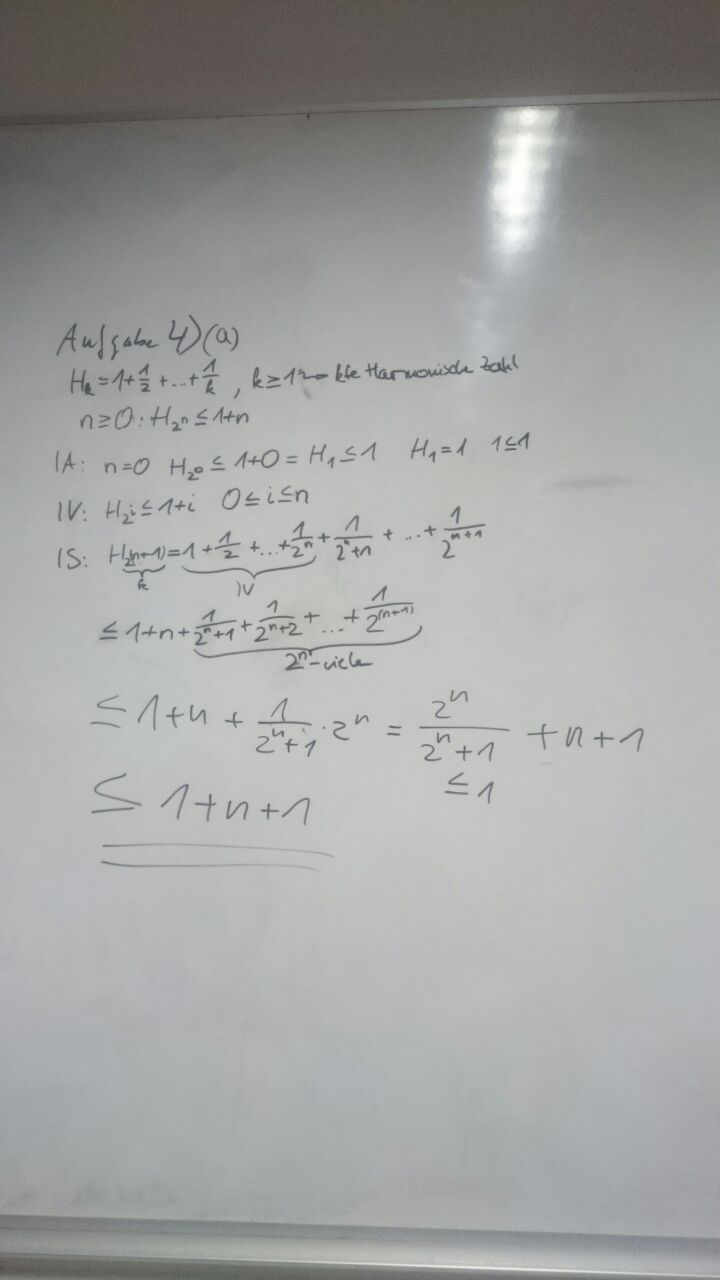 Aufgabe 4)(a)
Hₖ=1+1/2+...+1/k, k≥1 ~ kte Harmonische Zahl
n≥0: H_2ⁿ ≤ 1+n
IA: n=0 H_2⁰ ≤ 1+0 = H₁≤1 H₁=1 1≤1
IV: H_2ⁱ ≤ 1+i 0≤i≤n
IS: H_2(n+1) = 1+1/2+...+1/2ⁿ + 1/(2ⁿ+1) + ...+ 1/2ⁿ⁺¹
k IV
≤ 1+n+ 1/(2ⁿ+1) + 1/(2ⁿ+2) + ...+ 1/2⁽ⁿ⁺¹⁾
2ⁿ-viele
≤ 1+n + 1/(2ⁿ+1) · 2ⁿ = 2ⁿ/(2ⁿ+1) +n+1
≤ 1
≤ 1+n+1